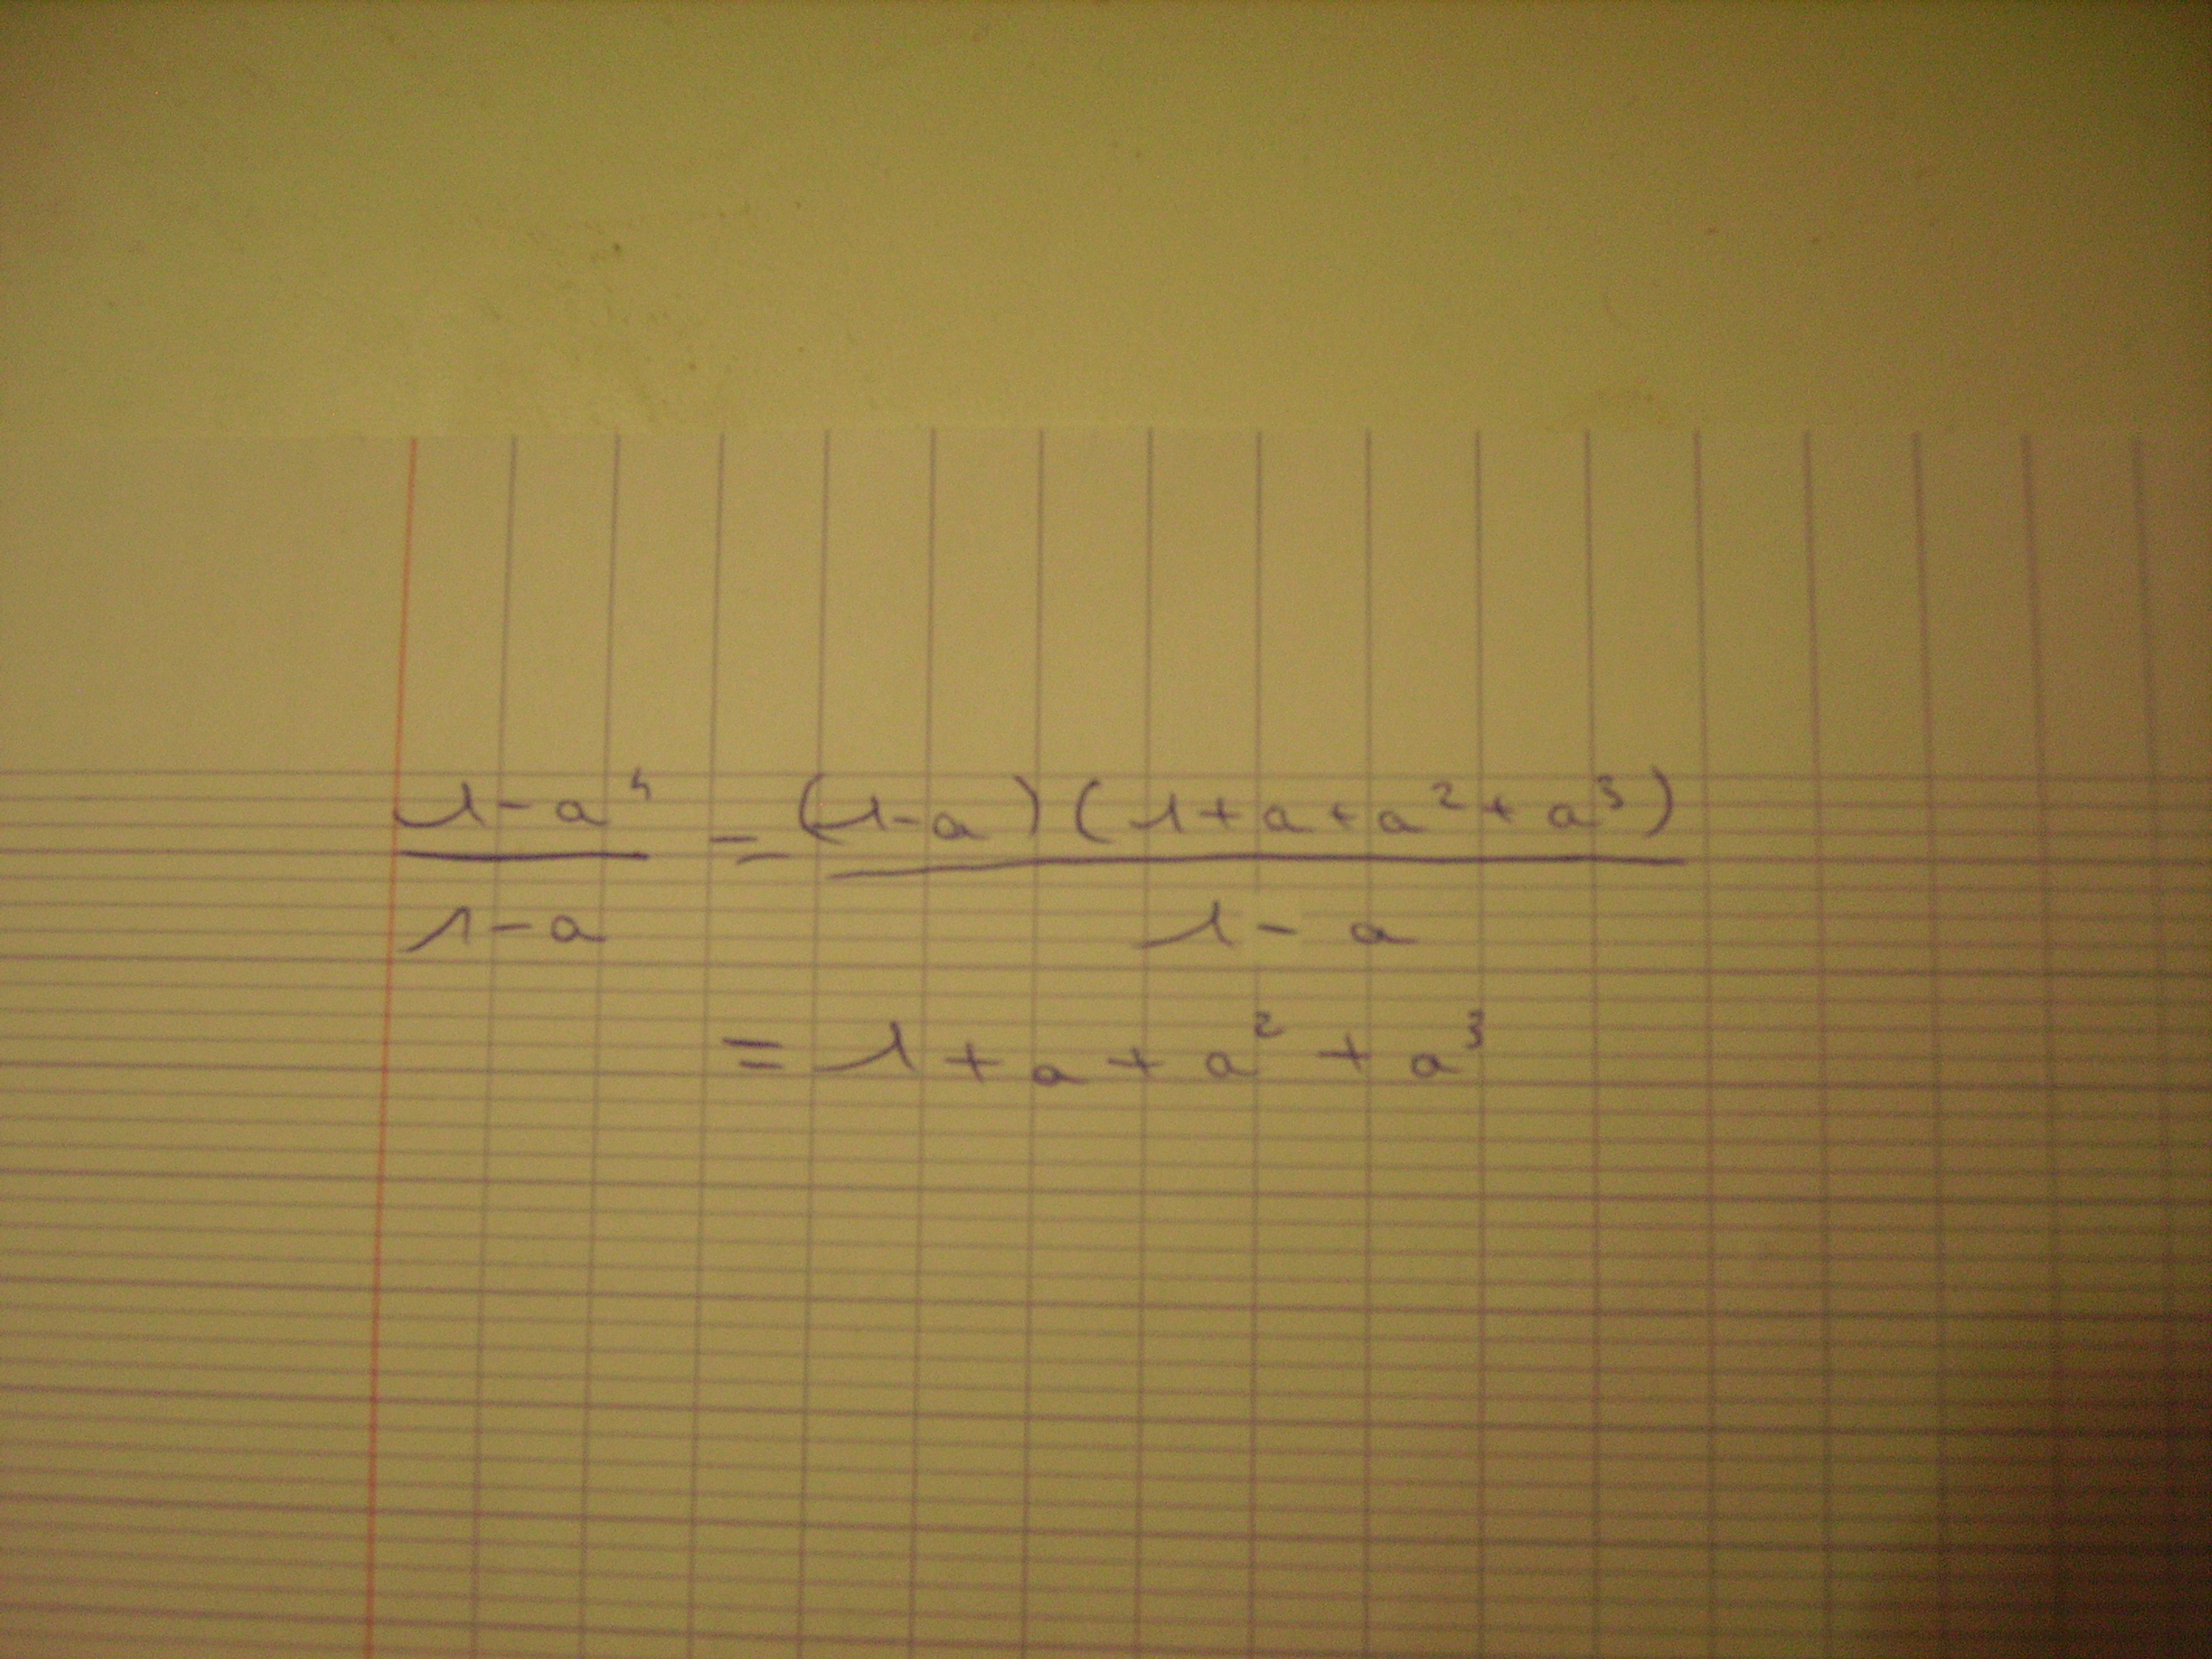 (1-a⁴)/(1-a) = ((1-a)(1+a+a²+a³))/(1-a)
= 1+a+a²+a³